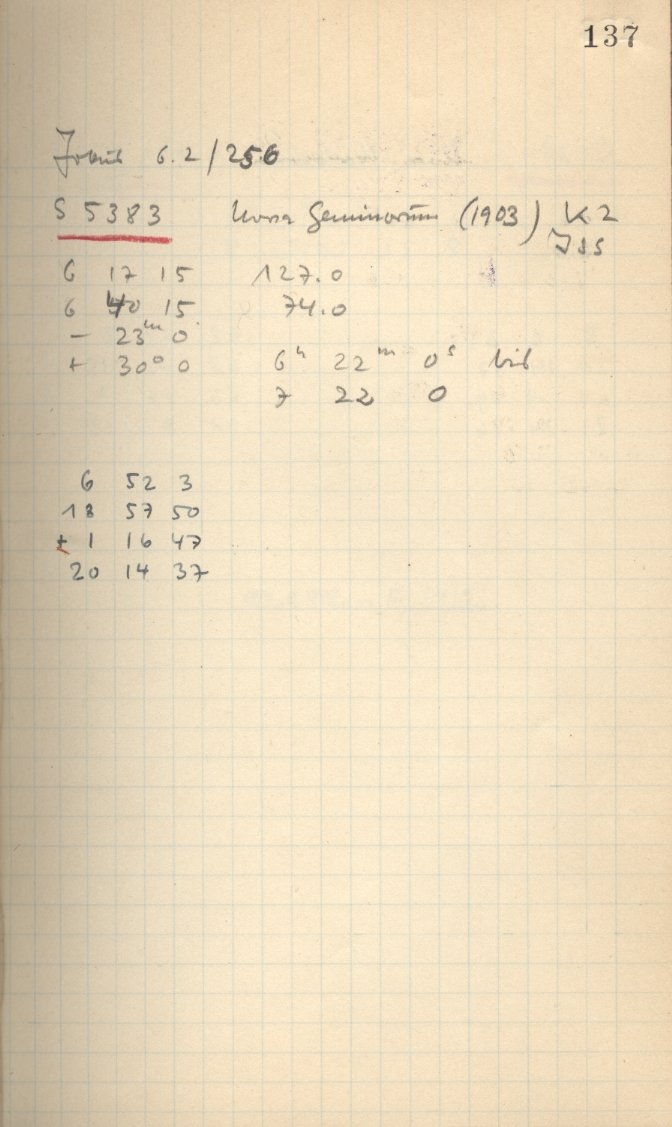 137
Fokus 6.2 / 256
S 5383 Nova Geminorum (1903) K2
JSS
6 17 15 127.0
6 40 15 74.0
− 23ᵐ 0
+ 30° 0 6ʰ 22ᵐ 0ˢ bis
7 22 0
6 52 3
18 57 50
+ 1 16 47
20 14 37